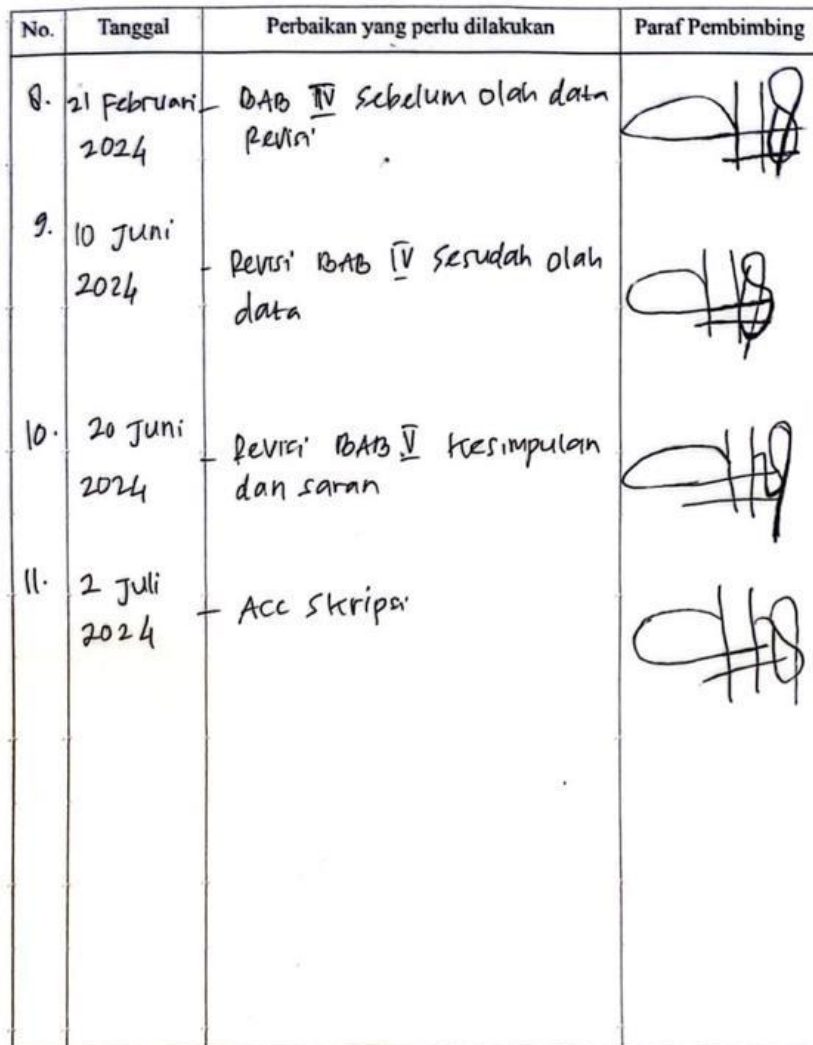 No. Tanggal Perbaikan yang perlu dilakukan Paraf Pembimbing
8. 21 Februari - BAB IV Sebelum olah data
2024 Revisi
9. 10 Juni
- Revisi BAB IV Sesudah olah
2024
data
10. 20 Juni
- Revisi BAB V Kesimpulan
2024 dan saran
11. 2 Juli
- Acc Skripsi
2024